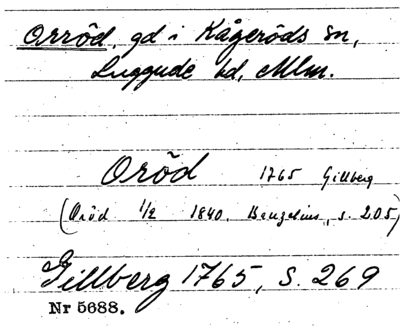 Orröd, gd i Kågeröds sn,
Luggude hd, Mlm.
Oröd 1765 Gillberg
(Oröd 1/2 1840. Benzelius, s. 205)
Gillberg 1765, S. 269
Nr 5688.